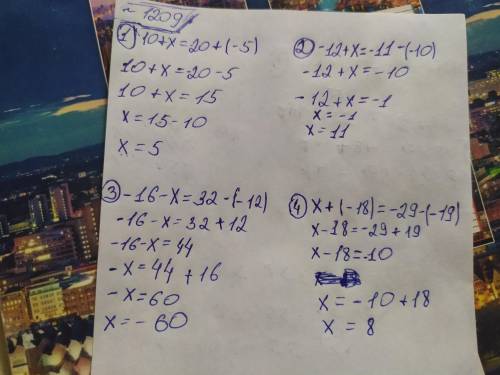 № 1209
1) 10+x=20+(-5)
10+x=20-5
10+x=15
x=15-10
x=5
2) -12+x=-11-(-10)
-12+x=-10
-12+x=-1
x=-1
x=11
3) -16-x=32-(-12)
-16-x=32+12
-16-x=44
-x=44+16
-x=60
x=-60
4) x+(-18)=-29-(-19)
x-18=-29+19
x-18=-10
x=-10+18
x=8